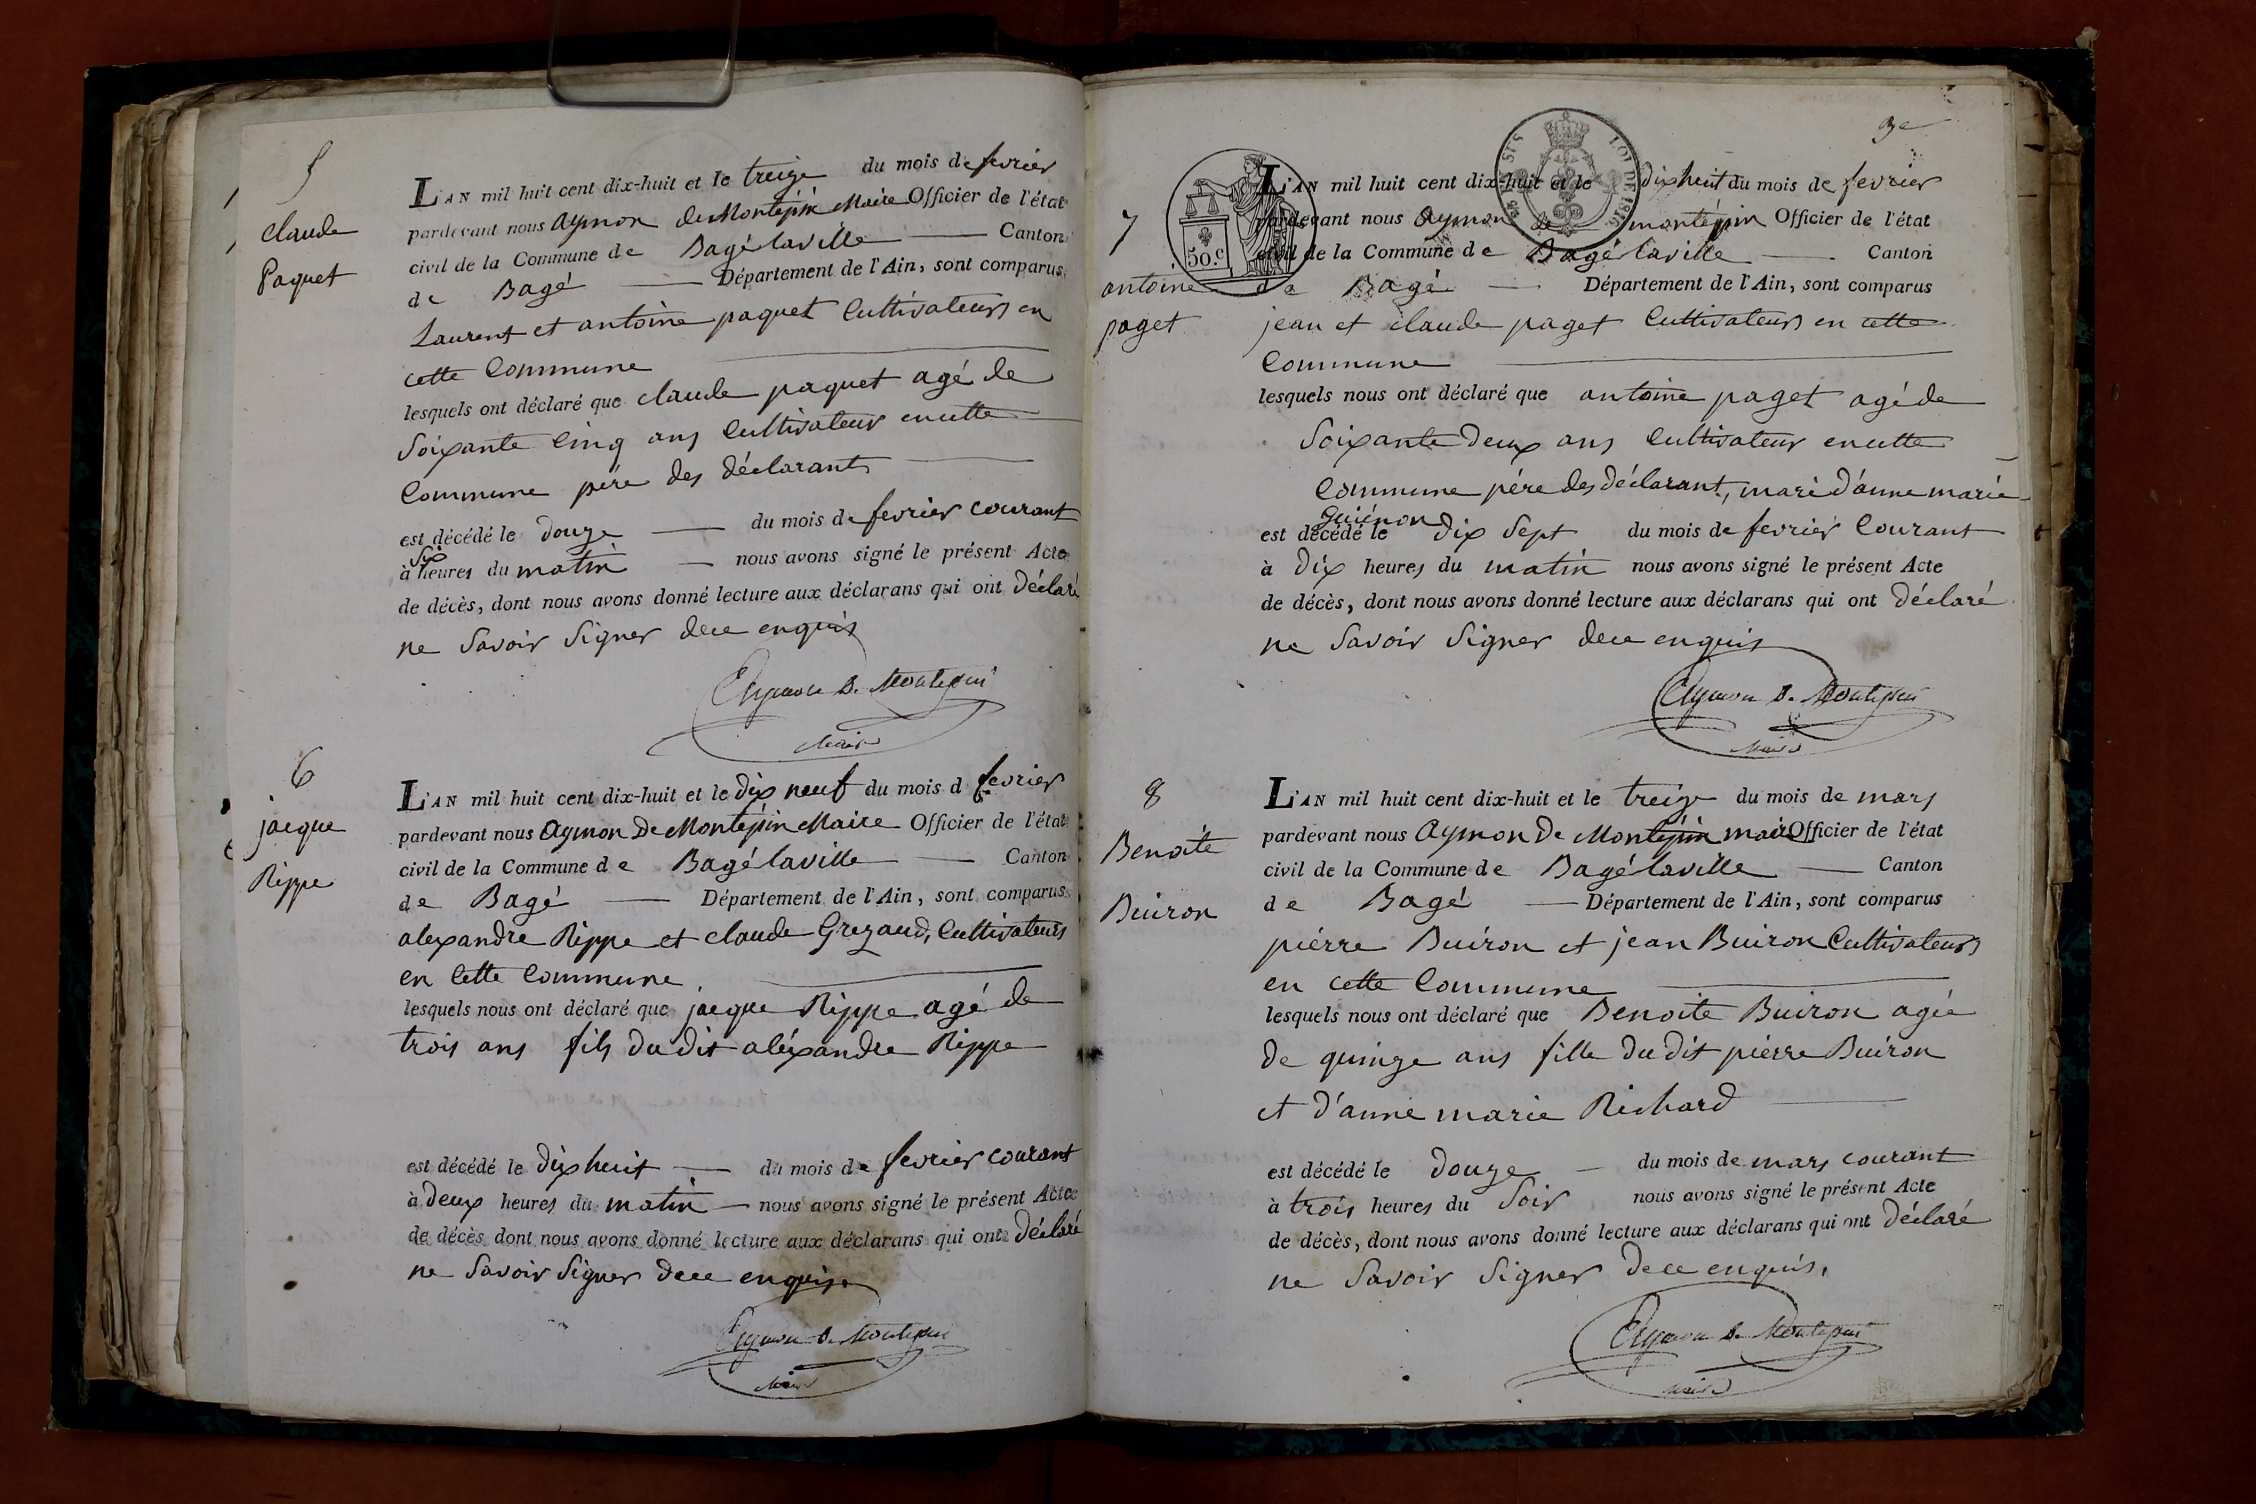 5
claude
Paquet
L'AN mil huit cent dix-huit et le treize du mois de fevrier
pardevant nous aymon de Montépin Maire Officier de l'état
civil de la Commune de Bagé laville Canton
de Bagé Département de l'Ain, sont comparus
Laurent et antoine paquet Cultivateurs en
cette Commune
lesquels ont déclaré que claude paquet agé de
Soixante Cinq ans Cultivateur en cette
Commune pére des déclarants
est décédé le douze du mois de fevrier courant
à six heures du matin nous avons signé le présent Acte
de décès, dont nous avons donné lecture aux déclarans qui ont déclaré
ne Savoir Signer de ce enquis
Aymon De Montepin
Maire
6
jacque
Rippe
L'AN mil huit cent dix-huit et le dix neuf du mois d fevrier
pardevant nous aymon De Montépin Maire Officier de l'état
civil de la Commune de Bagé laville Canton
de Bagé Département de l'Ain, sont comparus
alexandre Rippe et claude Grezaud, Cultivateurs
en Cette Commune
lesquels nous ont déclaré que jacque Rippe agé de
trois ans fils du dit aléxandre Rippe
est décédé le dix huit du mois de fevrier courant
à deux heures du matin nous avons signé le présent Acte
de décès dont nous avons donné lecture aux déclarans qui ont déclaré
ne Savoir Signer de ce enquis.
Aymon De Montepin
Maire
3e
50.c
LOI DE 1816
7
antoine
paget
L'AN mil huit cent dix-huit et le dix huit du mois de fevrier
pardevant nous aymon de montépin Officier de l'état
civil de la Commune de Bagé laville Canton
de Bagé Département de l'Ain, sont comparus
jean et claude paget Cultivateurs en cette
Commune
lesquels nous ont déclaré que antoine paget agé de
Soixante deux ans Cultivateur en cette
Commune pére des déclarant, mari d'anne marie
Guiénon
est décédé le dix Sept du mois de fevrier Courant
à dix heures du matin nous avons signé le présent Acte
de décès, dont nous avons donné lecture aux déclarans qui ont déclaré
ne Savoir Signer de ce enquis
Aymon De Montepin
Maire
8
Benoite
Buiron
L'AN mil huit cent dix-huit et le treize du mois de mars
pardevant nous aymon De Montépin maire Officier de l'état
civil de la Commune de Bagé laville Canton
de Bagé Département de l'Ain, sont comparus
piérre Buiron et jean Buiron Cultivateurs
en cette Commune
lesquels nous ont déclaré que Benoite Buiron agée
de quinze ans fille du dit piérre Buiron
et d'anne marie Richard
est décédé le douze du mois de mars courant
à trois heures du Soir nous avons signé le présent Acte
de décès, dont nous avons donné lecture aux déclarans qui ont déclaré
ne Savoir Signer de ce enquis.
Aymon De Montepin
Maire